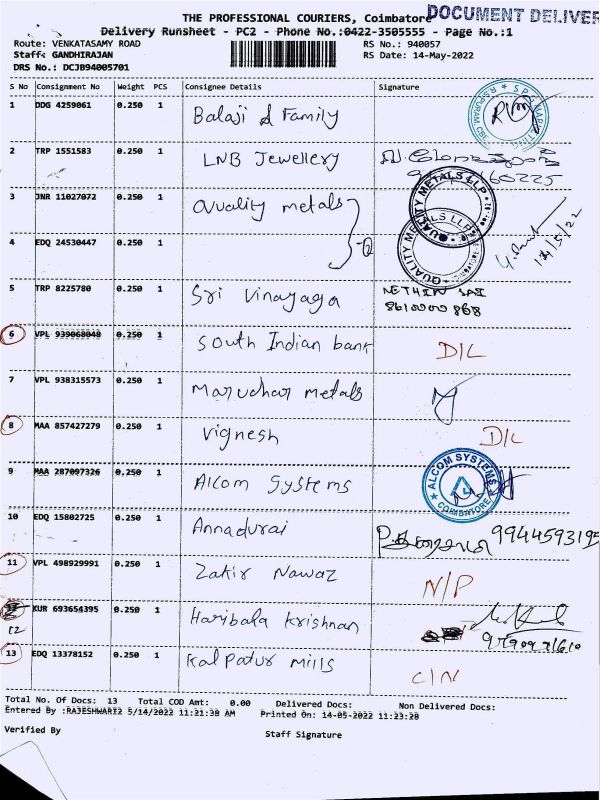 THE PROFESSIONAL COURIERS, Coimbatore
DOCUMENT DELIVER
Delivery Runsheet - PC2 - Phone No.:0422-3505555 - Page No.:1
Route: VENKATASAMY ROAD RS No.: 940057
Staff: GANDHIRAJAN RS Date: 14-May-2022
DRS No.: DCJB94005701
S No Consignment No Weight PCS Consignee Details Signature
1 DDG 4259061 0.250 1 Balaji & Family
2 TRP 1551583 0.250 1 LNB Jewellery
3 JNR 11027072 0.250 1 Quality metals QUALITY METALS LLP
4 EDQ 24530447 0.250 1 QUALITY METALS LLP 14/5/22
5 TRP 8225780 0.250 1 Sri Vinayaga NETHIN SAI
6 VPL 939068048 0.250 1 South Indian bank D/L
7 VPL 938315573 0.250 1 Marudhar metals
8 MAA 857427279 0.250 1 Vignesh D/L
9 MAA 287097326 0.250 1 Alcom Systems ALCOM SYSTEMS COIMBATORE
10 EDQ 15802725 0.250 1 Annadurai 9944593195
11 VPL 498929991 0.250 1 Zakir Nawaz N/P
12 KUR 693654395 0.250 1 Haribala Krishnan
13 EDQ 13378152 0.250 1 Kalpatur mills C/N
Total No. Of Docs: 13 Total COD Amt: 0.00 Delivered Docs: Non Delivered Docs:
Entered By :RAJESHWARI2 5/14/2022 11:21:38 AM Printed On: 14-05-2022 11:23:28
Verified By Staff Signature